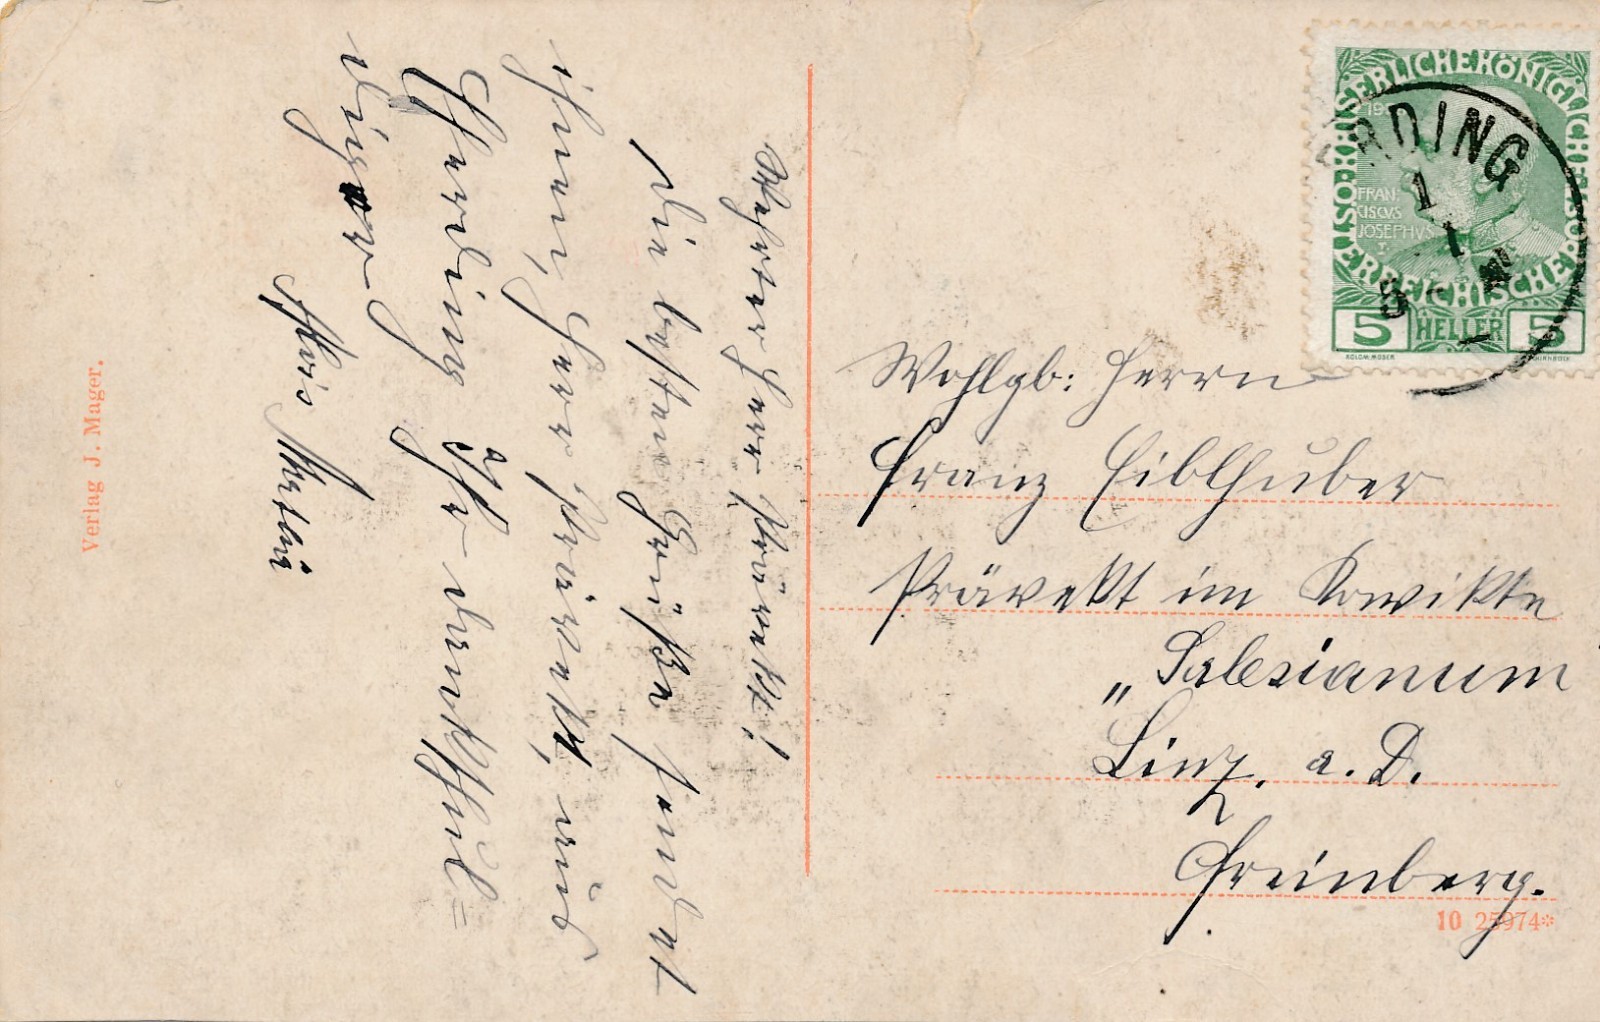 Wehrter Herr Prävekt!
Die besten Grüße sendet
ihnen, Herr Prävekt, aus
Efferding Ihr dankschul=
diger
Alois
Verlag J. Mager.
KAISERLICHE KÖNIGLICHE ÖSTERREICHISCHE POST
FRAN
CISCVS
JOSEPHVS
I.
5 HELLER 5
KOLOM. MOSER
ERDING
1
1
Wohlgb: Herrn
Franz Eiblhuber
Prävekt im Kovikte
„Salesianum
Linz. a. D.
Freinberg.
10 25974*